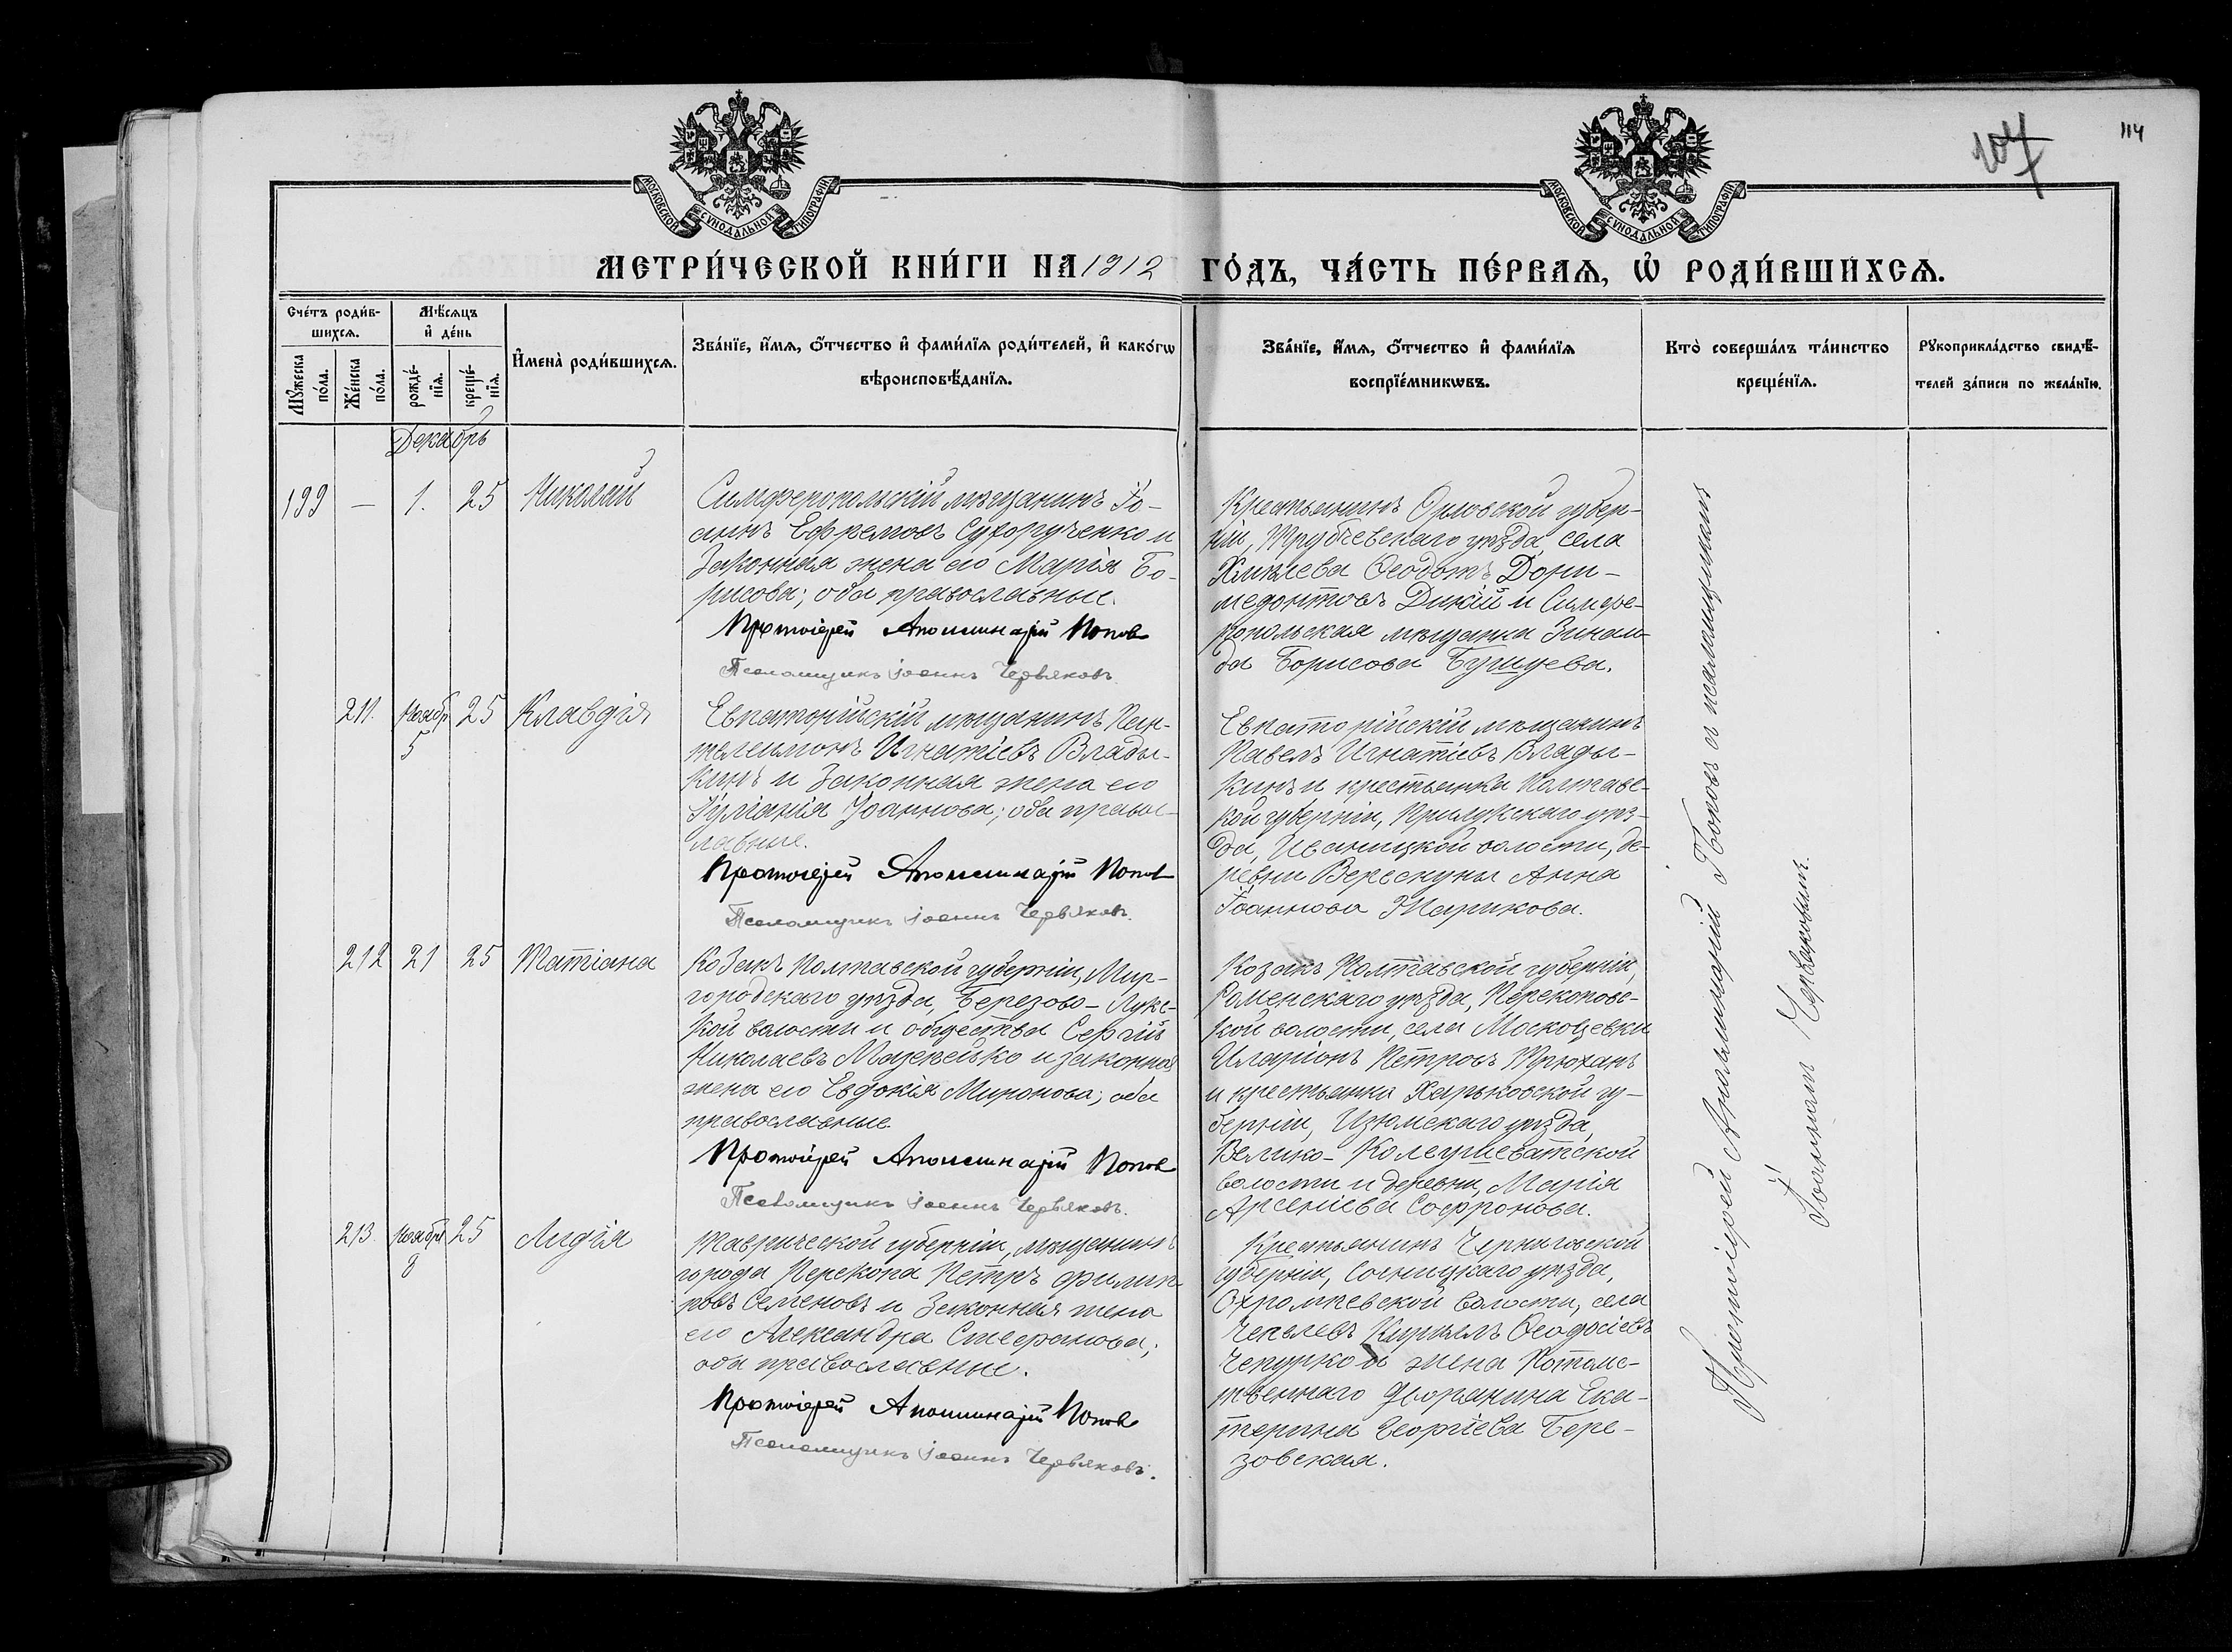 107
114
МОСКОВСКОЙ СѴНОДАЛЬНОЙ ТИПОГРАФІИ
МОСКОВСКОЙ СѴНОДАЛЬНОЙ ТИПОГРАФІИ
МЕТРИ́ЧЕСКОЙ КНИ́ГИ НА 1912 ГО́ДЪ, ЧА́СТЬ ПЕ́РВАѦ, Ѽ РОДИ́ВШИХСѦ.
Сче́тъ роди́в-
шихсѧ.
Мꙋжеска по́ла.
Же́нска по́ла.
Мѣ́сѧцъ
и҆ де́нь
рожде́-
нїѧ.
креще́-
нїѧ.
И҆мена̀ роди́вшихсѧ.
Зва́нїе, и҆́мѧ, ѻ҆́тчество и҆ фами́лїѧ роди́телей, и҆ како́гѡ
вѣроисповѣ́данїѧ.
Зва́нїе, и҆́мѧ, ѻ҆́тчество и҆ фами́лїѧ
воспрїе́мникѡвъ.
Кто̀ соверша́лъ та́инство
креще́нїѧ.
Рꙋкоприкла́дство свидѣ́-
телей за́писи по жела́нїю.
Декабрь
199 — 1. 25 Николай
Симферопольскій мѣщанинъ Іо-
аннъ Ефремовъ Сухорученко и
законная жена его Марія Бо-
рисова; оба православные.
Протоіерей Аполлинарій Попов
Псаломщикъ Іоаннъ Червяковъ.
Крестьянинъ Орловской губер-
ніи, Трубчевскаго уѣзда, села
Хмѣлева Ѳеодотъ Дори-
медонтовъ Дикій и Симфе-
ропольская мѣщанка Зинаи-
да Борисова Бушуева.
211. Ноябр. 5 25 Клавдія
Евпаторійскій мѣщанинъ Пан-
телеимонъ Игнатіевъ Влады-
кинъ и законная жена его
Іуліанія Іоаннова; оба правос-
лавные.
Протоіерей Аполлинарій Попов
Псаломщикъ Іоаннъ Червяковъ.
Евпаторійскій мѣщанинъ
Павелъ Игнатіевъ Влады-
кинъ и крестьянка Полтавс-
кой губерніи, Прилукскаго уѣз-
да, Иваницкой волости, де-
ревни Верескуны Анна
Іоаннова Тарикова.
212 21 25 Татіана
Козакъ Полтавской губерніи, Мир-
городскаго уѣзда, Березово-Лукс-
кой волости и общества Сергій
Николаевъ Мацепейко и законная
жена его Евдокія Миронова; оба
православные.
Протоіерей Аполлинарій Попов
Псаломщикъ Іоаннъ Червяковъ.
Козакъ Полтавской губерніи,
Роменскаго уѣзда, Перекоповс-
кой волости, села Московцевки
Иларіонъ Петровъ Трюханъ
и крестьянка Харьковской гу-
берніи, Изюмскаго уѣзда,
Велико-Комышеватской
волости и деревни, Марія
Арсеніева Софронова.
213. Ноября 8 25 Лидія
Таврической губерніи, мѣщанинъ
города Перекопа Петръ Филип-
повъ Семеновъ и законная жена
его Александра Стефанова;
оба православные.
Протоіерей Аполлинарій Попов
Псаломщикъ Іоаннъ Червяковъ.
Крестьянинъ Черниговской
губерніи, Сосницкаго уѣзда,
Охромѣевской волости, села
Чепелевъ Кириллъ Ѳеодосіевъ
Чепурко и жена потомс-
твеннаго дворянина Ека-
терина Георгіева Бере-
зовская.
Протоіерей Аполлинарій Поповъ съ псаломщикомъ
Іоанномъ Червяковымъ.